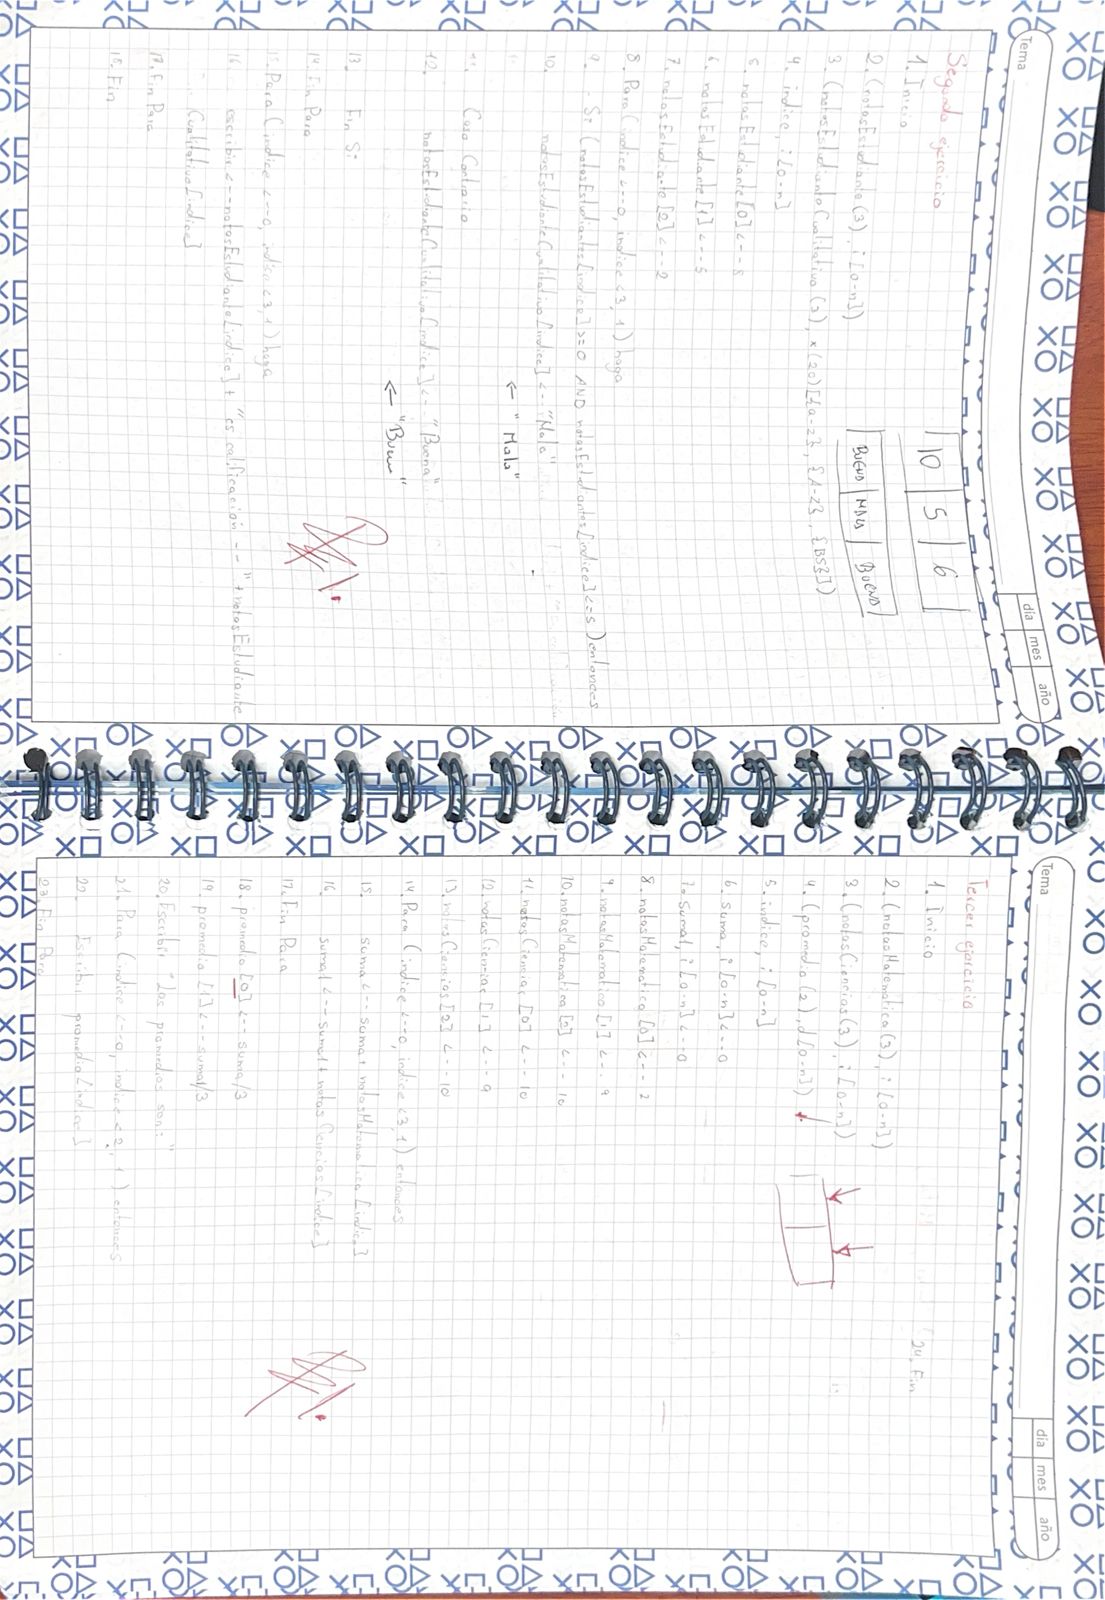 Tema
día mes año
Segundo ejercicio
1. Inicio
2. (notasEstudiante(3), i [0-n])
3. (notasEstudianteCualitativa(3), x(20)[{a-z}, {A-Z}, {BS}])
4. indice, i [0-n]
5. notasEstudiante[0] <-- 5
6. notasEstudiante[1] <-- 5
7. notasEstudiante[2] <-- 2
8. Para (indice <--0, indice <3, 1) haga
9. - Si (notasEstudiantes[indice] >=0 AND notasEstudiantes[indice] <=5) entonces
10. notasEstudianteCualitativa[indice] <-- "Mala"
← "Mala"
11. Caso Contrario
12. notasEstudianteCualitativa[indice] <-- "Buena"
← "Buena"
13. Fin Si
14. Fin Para
15. Para (indice <--0, indice <3, 1) haga
16. escribir <-- notasEstudiante[indice] + "es calificación --" + notasEstudiante
Cualitativa[indice]
17. Fin Para
18. Fin
10 5 6
BUENO MALO BUENO
Tema
día mes año
Tercer ejercicio
1. Inicio
2. (notasMatematica(3), i [0-n])
3. (notasCiencias(3), i [0-n])
4. (promedio(2), d [0-n])
5. indice, i [0-n]
6. suma, i [0-n] <--0
7. suma1, i [0-n] <--0
8. notasMatematica[0] <-- 2
9. notasMatematica[1] <-- 9
10. notasMatematica[2] <-- 10
11. notasCiencias[0] <-- 10
12. notasCiencias[1] <-- 9
13. notasCiencias[2] <-- 10
14. Para (indice <--0, indice <3, 1) entonces
15. suma <-- suma + notasMatematica[indice]
16. suma1 <-- suma1 + notasCiencias[indice]
17. Fin Para
18. promedio[0] <-- suma/3
19. promedio[1] <-- suma1/3
20. Escribir "Los promedios son:"
21. Para (indice <--0, indice <2, 1) entonces
22. Escribir promedio[indice]
23. Fin Para
24. Fin